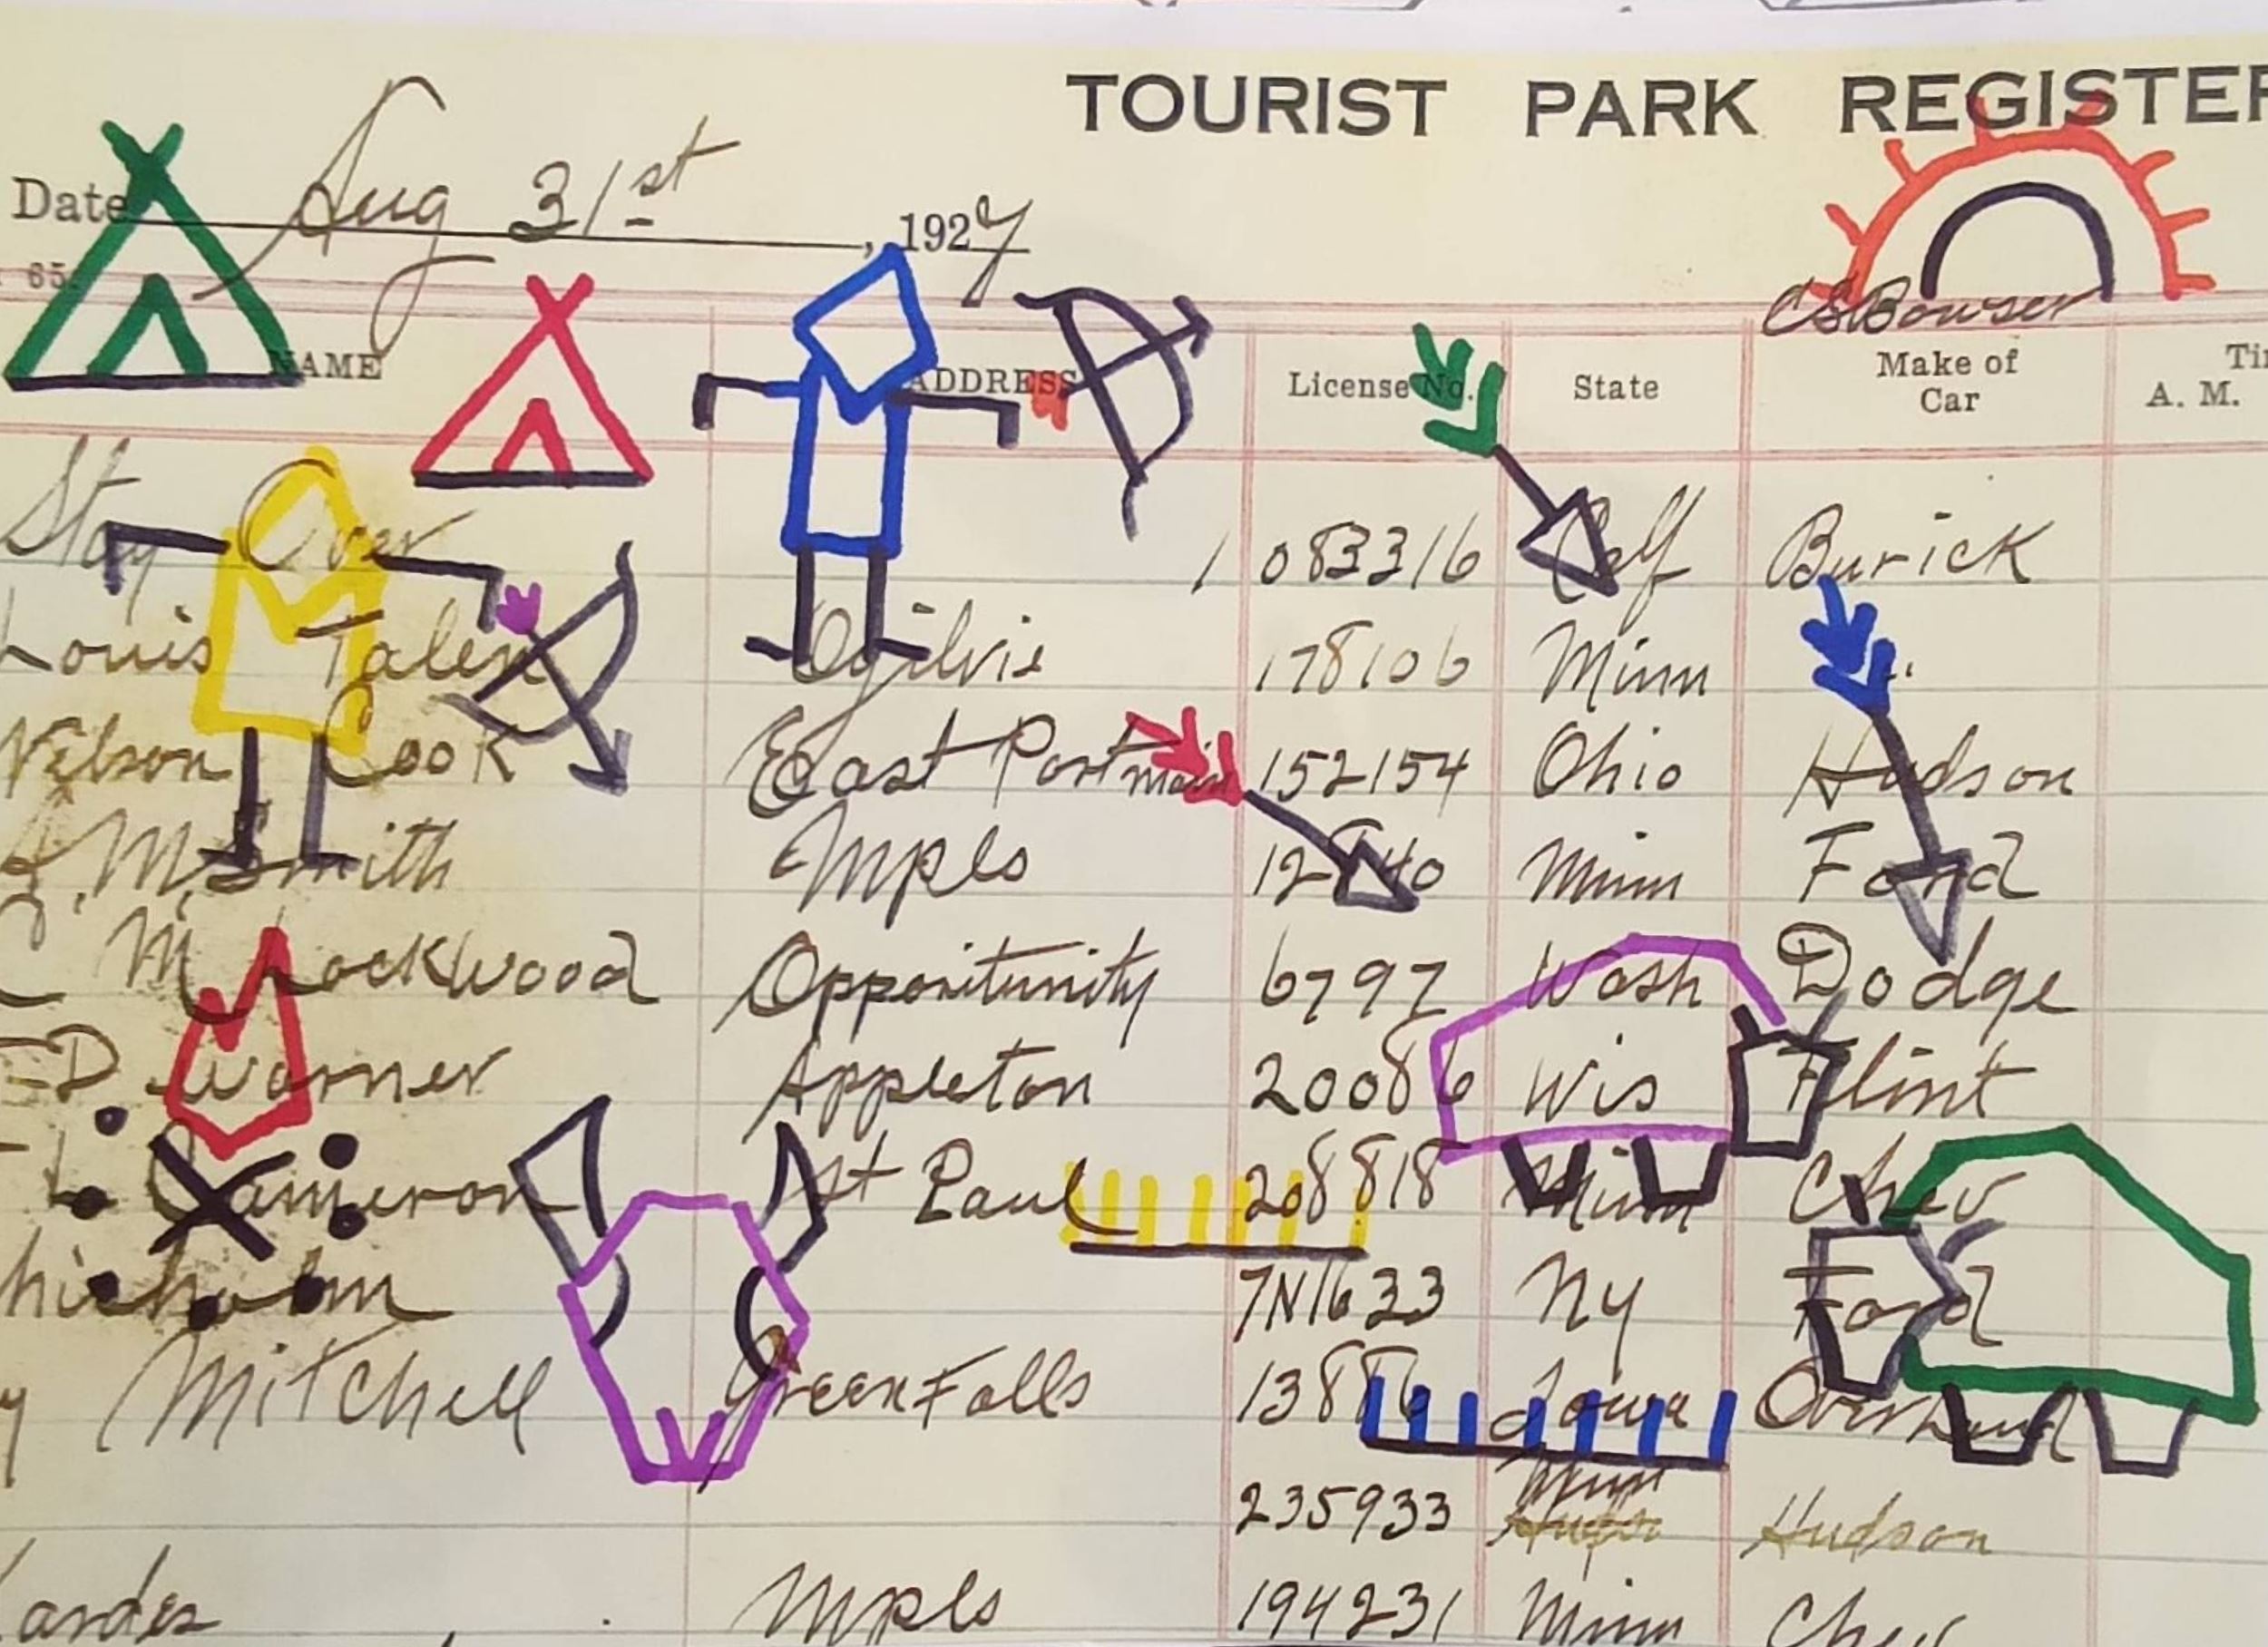 TOURIST PARK REGISTER
Date Aug 31st, 1927
65.
CSBowser
NAME ADDRESS License No. State Make of Car A. M.
Stay Over 1 083316 Calf Burick
Louis Talen Ogilvie 178106 Minn "
Nelson Cook East Port main 152154 Ohio Hudson
M. Smith Mpls Minn Ford
C M Lockwood Opporitunity 6797 Wash Dodge
D Warner Appleton 20086 Wis Flint
L Cameron St Paul 208818 Minn Chev
hisholm 7N1633 Ny Ford
y Mitchell Green Falls 13886 Iowa Overland
235933 Minn Hudson
Mpls 194231 Minn Chev